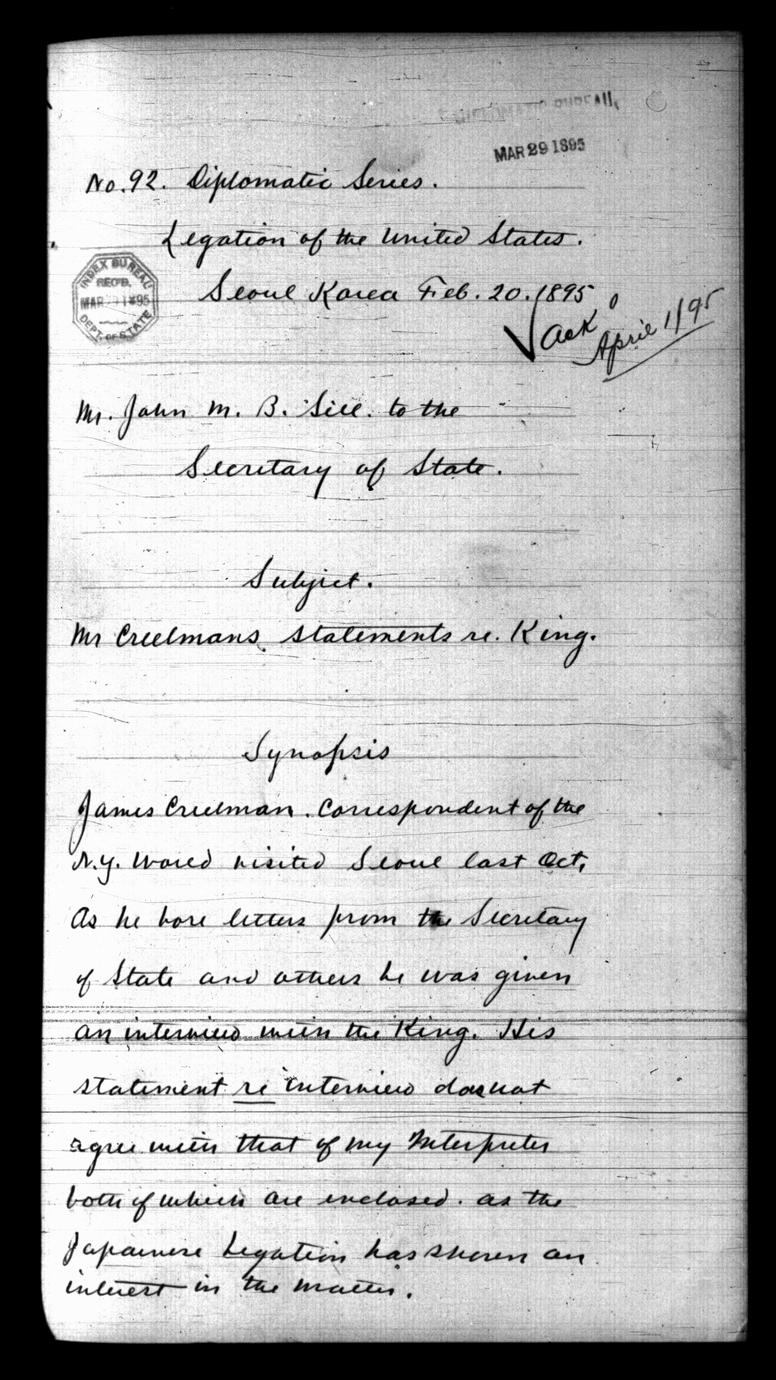 DIPLOMATIC BUREAU,
MAR 29 1895
No. 92. Diplomatic Series.
Legation of the United States.
INDEX BUREAU
REC'D.
MAR 29 1895
DEPT. OF STATE
Seoul Korea Feb. 20. 1895
Ack'd
April 1/95
Mr. John M. B. Sill. to the
Secretary of State.
Subject.
Mr Creelmans statements re. King.
Synopsis
James Creelman. Correspondent of the
N.Y. World visited Seoul last Oct,
As he bore letters from the Secretary
of State and others he was given
an interview with the King. His
statement re interview does not
agree with that of my Interpreter
both of which are enclosed. as the
Japanese Legation has shown an
interest in the matter.